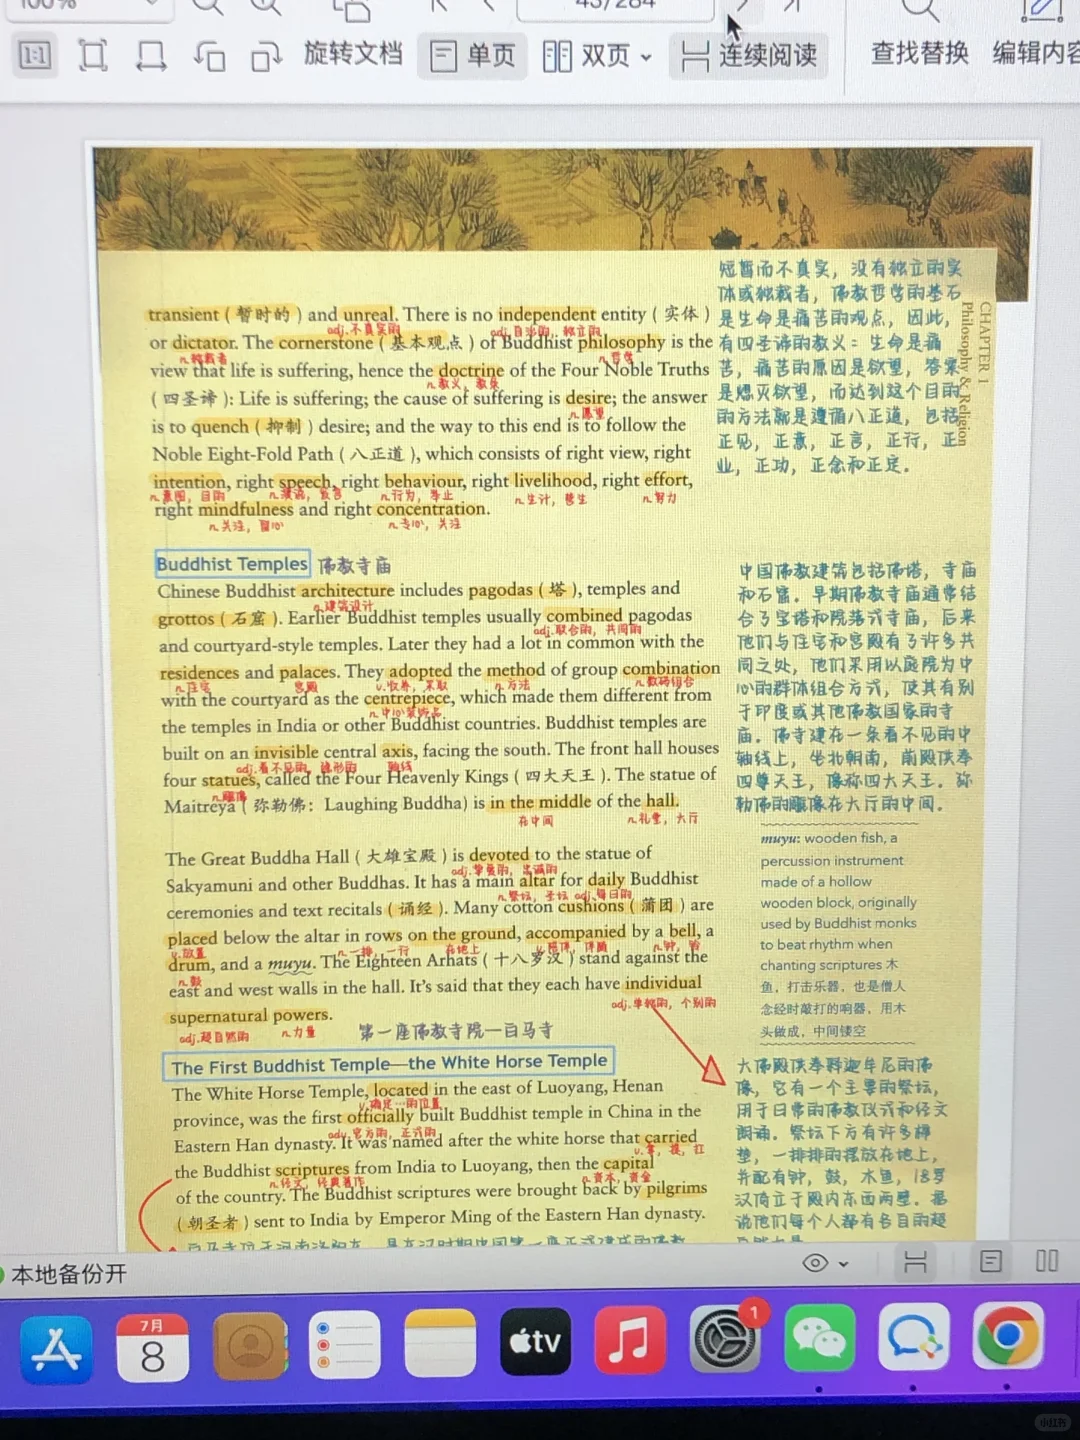 旋转文档
单页
双页
连续阅读
查找替换
CHAPTER 1
Philosophy & Religion
transient（暂时的）and unreal. There is no independent entity（实体）
adj.不真实的
adj.自治的，独立的
or dictator. The cornerstone（基本观点）of Buddhist philosophy is the
n.独裁者
n.哲学
view that life is suffering, hence the doctrine of the Four Noble Truths
n.教义，教条
（四圣谛）: Life is suffering; the cause of suffering is desire; the answer
n.愿望
is to quench（抑制）desire; and the way to this end is to follow the
Noble Eight-Fold Path（八正道）, which consists of right view, right
intention, right speech, right behaviour, right livelihood, right effort,
n.意图，目的
n.演说，发言
n.行为，举止
n.生计，营生
n.努力
right mindfulness and right concentration.
n.关注，留心
n.专心，关注
短暂而不真实，没有独立的实
体或独裁者，佛教哲学的基石
是生命是痛苦的观点，因此，
有四圣谛的教义：生命是痛
苦，痛苦的原因是欲望，答案
是熄灭欲望，而达到这个目的
的方法就是遵循八正道，包括
正见，正意，正言，正行，正
业，正功，正念和正定。
Buddhist Temples 佛教寺庙
Chinese Buddhist architecture includes pagodas（塔）, temples and
n.建筑设计
grottos（石窟）. Earlier Buddhist temples usually combined pagodas
adj.联合的，共同的
and courtyard-style temples. Later they had a lot in common with the
residences and palaces. They adopted the method of group combination
n.住宅
宫殿
v.收养，采取
n.方法
n.数码组合
with the courtyard as the centrepiece, which made them different from
n.中心装饰品
the temples in India or other Buddhist countries. Buddhist temples are
built on an invisible central axis, facing the south. The front hall houses
adj.看不见的，隐形的
轴线
four statues, called the Four Heavenly Kings（四大天王）. The statue of
n.雕像
Maitreya（弥勒佛：Laughing Buddha) is in the middle of the hall.
在中间
n.礼堂，大厅
中国佛教建筑包括佛塔，寺庙
和石窟。早期佛教寺庙通常结
合了宝塔和院落式寺庙，后来
他们与住宅和宫殿有了许多共
同之处，他们采用以庭院为中
心的群体组合方式，使其有别
于印度或其他佛教国家的寺
庙。佛寺建在一条看不见的中
轴线上，坐北朝南，前殿供奉
四尊天王，像称四大天王。弥
勒佛的雕像在大厅的中间。
The Great Buddha Hall（大雄宝殿）is devoted to the statue of
adj.挚爱的，忠诚的
Sakyamuni and other Buddhas. It has a main altar for daily Buddhist
n.祭坛，圣坛
adj.每日的
ceremonies and text recitals（诵经）. Many cotton cushions（蒲团）are
placed below the altar in rows on the ground, accompanied by a bell, a
v.放置
n.一排，一行
在地上
v.陪伴，伴随
n.钟，铃
drum, and a muyu. The Eighteen Arhats（十八罗汉）stand against the
n.鼓
east and west walls in the hall. It's said that they each have individual
adj.单独的，个别的
supernatural powers.
adj.超自然的
n.力量
muyu: wooden fish, a
percussion instrument
made of a hollow
wooden block, originally
used by Buddhist monks
to beat rhythm when
chanting scriptures 木
鱼，打击乐器，也是僧人
念经时敲打的响器，用木
头做成，中间镂空
第一座佛教寺院—白马寺
The First Buddhist Temple—the White Horse Temple
The White Horse Temple, located in the east of Luoyang, Henan
v.确定…的位置
province, was the first officially built Buddhist temple in China in the
adv.官方的，正式的
Eastern Han dynasty. It was named after the white horse that carried
v.拿，提，扛
the Buddhist scriptures from India to Luoyang, then the capital
n.经文，经典著作
n.资本，资金
of the country. The Buddhist scriptures were brought back by pilgrims
（朝圣者）sent to India by Emperor Ming of the Eastern Han dynasty.
大佛殿供奉释迦牟尼的佛
像，它有一个主要的祭坛，
用于日常的佛教仪式和经文
朗诵。祭坛下方有许多棉
垫，一排排的摆放在地上，
并配有钟，鼓，木鱼，18罗
汉倚立于殿内东西两壁。据
说他们每个人都有各自的超
本地备份开
7月
8
tv
1
小红书